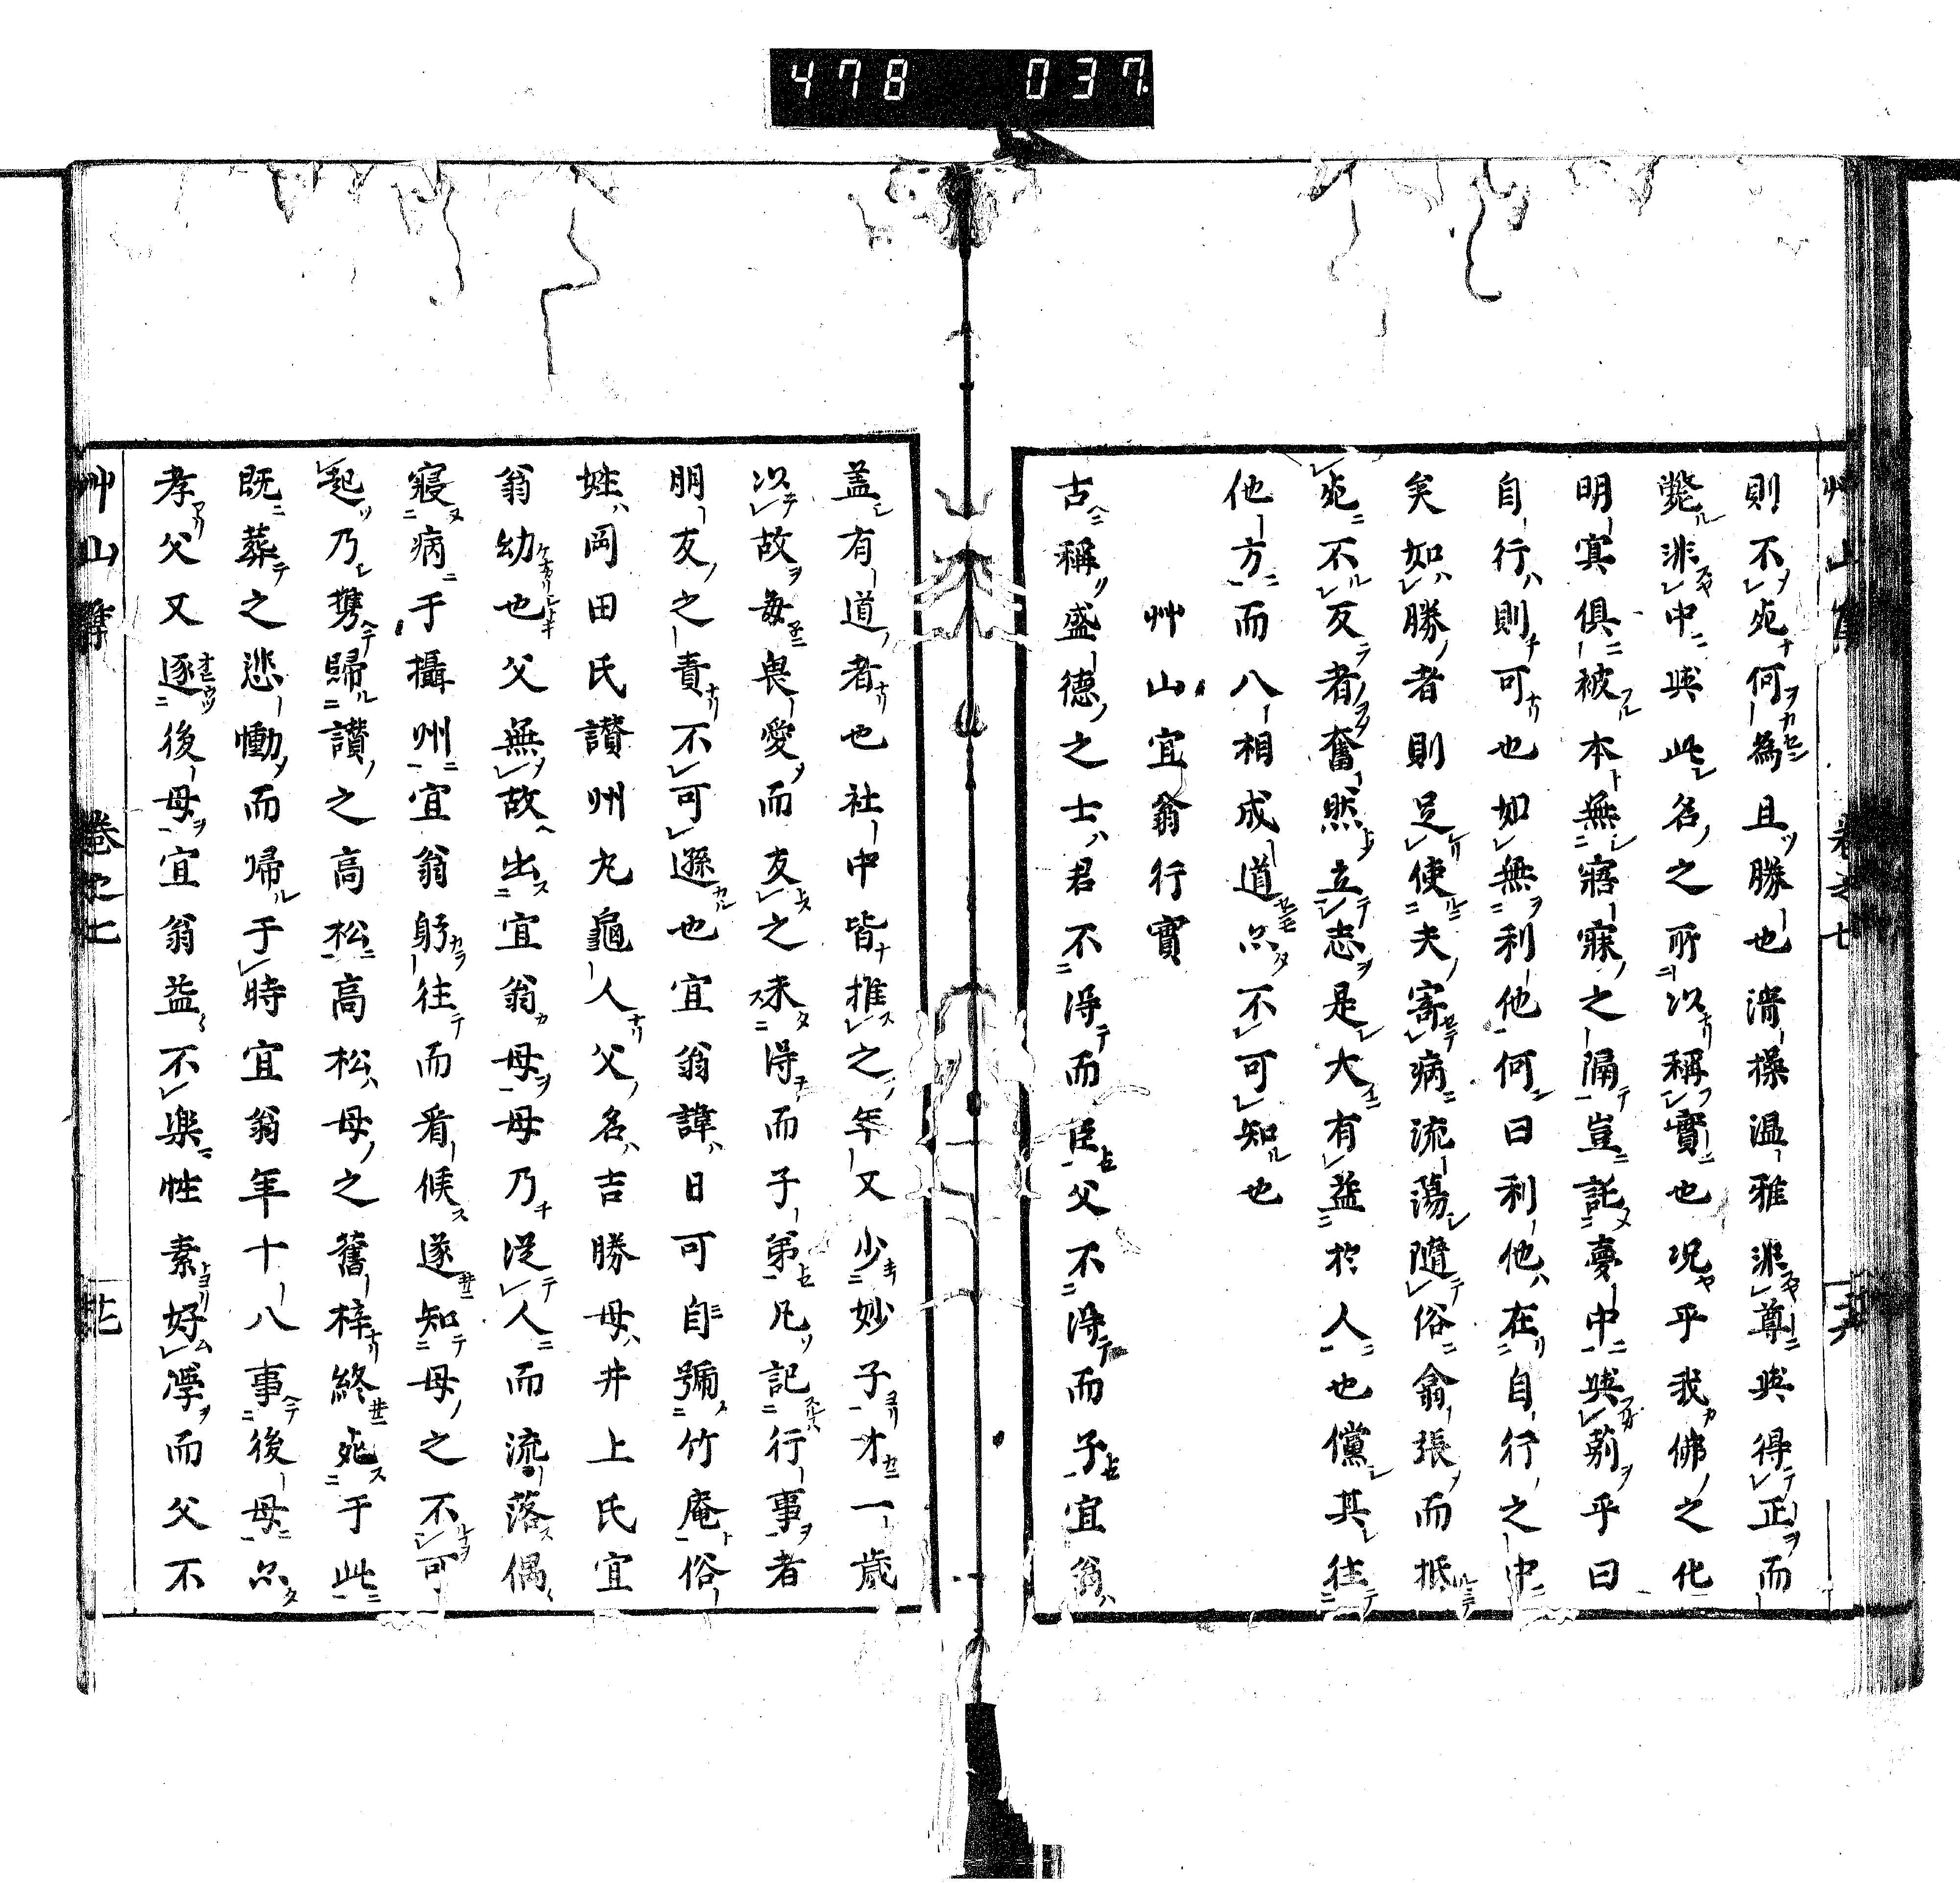 478 037.
艸山集 卷之七 十六
則不死何為且勝也清操溫雅非尊與得正而
斃非中與此名之所以稱實也况乎我佛之化
明寞俱被本無寤寐之隔豈託夢中與䓶乎曰
自行則可也如無利他何曰利他在自行之中
矣如勝者則足使夫寄病流蕩隨俗翕張而抵
死不反者奮然立志是大有益於人也儻其往
他方而八相成道亦不可知也
艸山宜翁行實
古稱盛德之士君不得而臣父不得而子宜翁
蓋有道者也社中皆推之年又少妙子才一歲
以故每畏愛而友之未得而子弟凡記行事者
朋友之責不可遜也宜翁諱日可自號竹庵俗
姓岡田氏讃州丸龜人父名吉勝母井上氏宜
翁幼也父無故出宜翁母母乃從人而流落偶
寢病于攝州宜翁躬往而看候遂知母之不可
起乃携歸讃之高松高松母之舊梓終死于此
既葬之悲慟而歸于時宜翁年十八事後母亦
孝父又逐後母宜翁益不樂性素好學而父不
艸山集 卷之七 十七